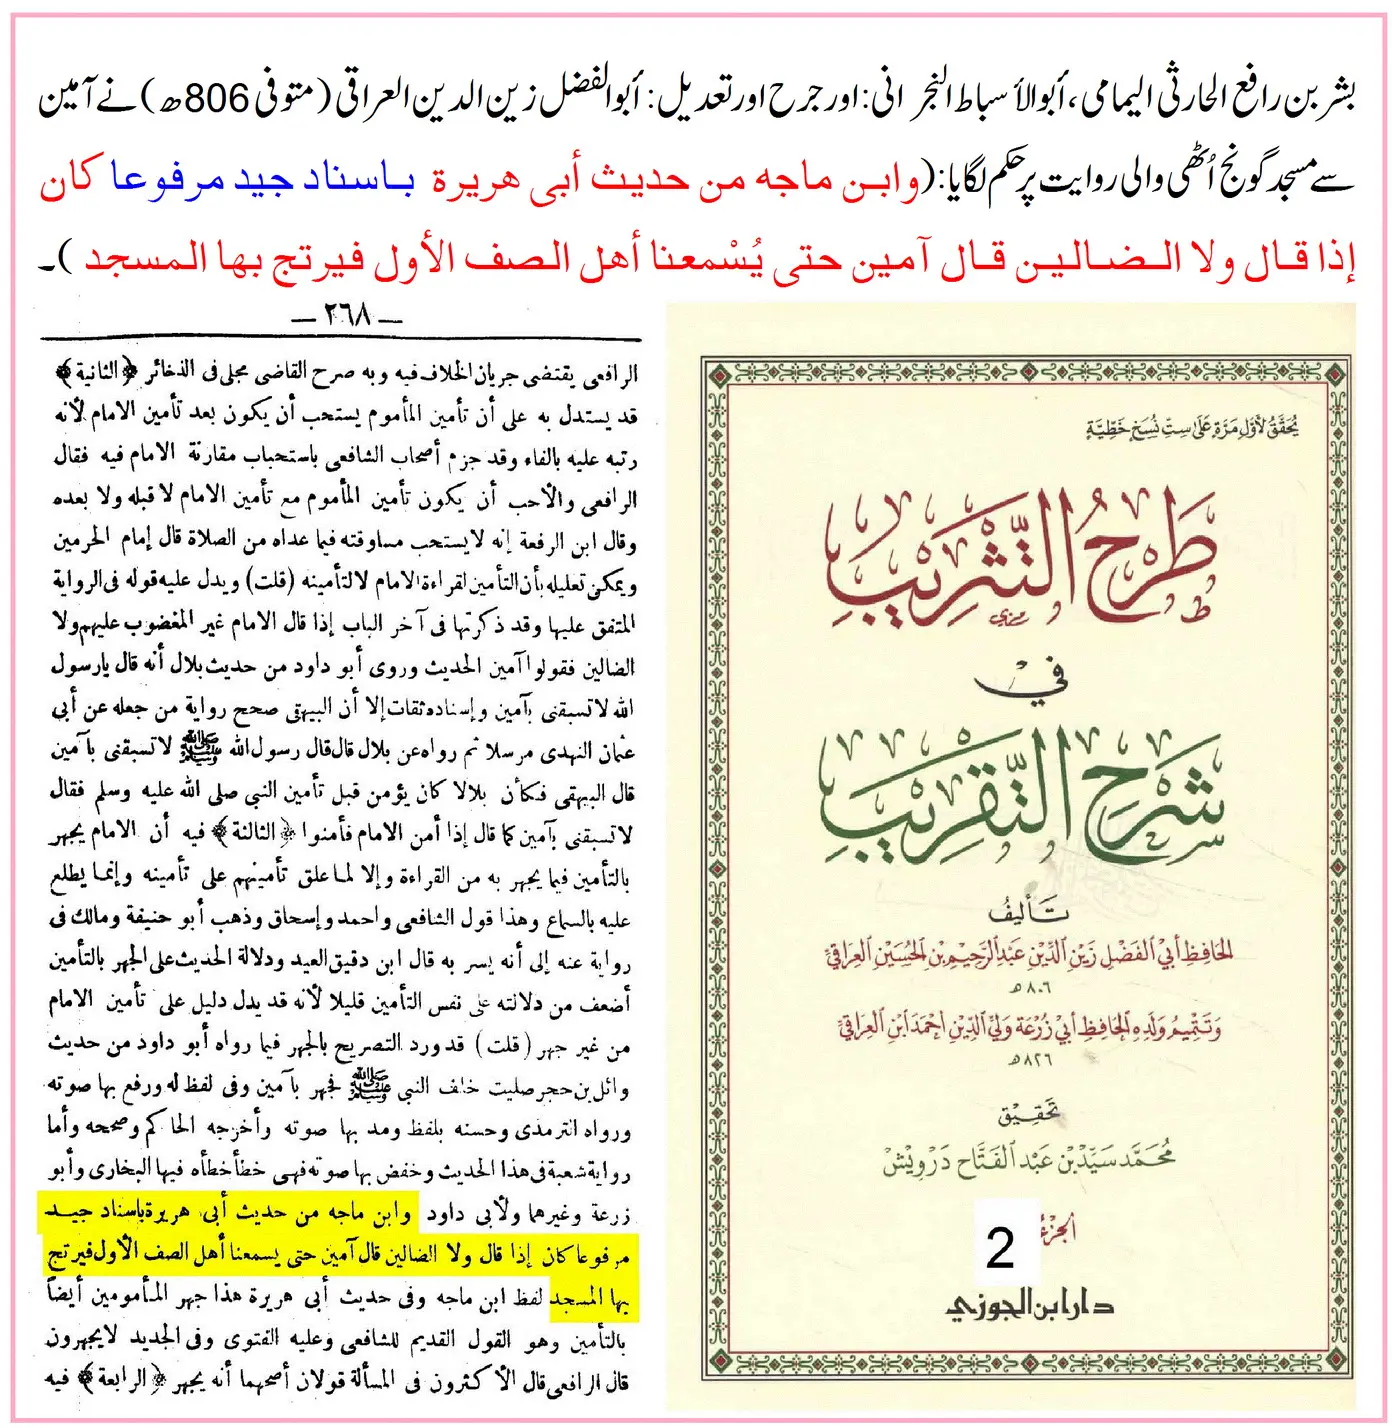 بشر بن رافع الحارثي اليمامي، أبو الأسباط النجرانی: اور جرح اور تعدیل: أبو الفضل زین الدین العراقی (متوفی 806ھ) نے آمین
سے مسجد گونج اُٹھی والی روایت پر حکم لگایا: (وابن ماجه من حديث أبى هريرة باسناد جيد مرفوعا كان
إذا قال ولا الضالين قال آمين حتى يُسْمعنا أهل الصف الأول فيرتج بها المسجد )۔
— ٢٦٨ —
الرافعى يقتضى جريان الخلاف فيه وبه صرح القاضى مجلى فى الذخائر ﴿الثانية﴾
قد يستدل به على أن تأمين المأموم يستحب أن يكون بعد تأمين الامام لأنه
رتبه عليه بالفاء وقد جزم أصحاب الشافعى باستحباب مقارنة الامام فيه فقال
الرافعى والأحب أن يكون تأمين المأموم مع تأمين الامام لا قبله ولا بعده
وقال ابن الرفعة إنه لا يستحب مساوقته فيما عداه من الصلاة قال إمام الحرمين
ويمكن تعليله بأن التأمين لقراءة الامام لا لتأمينه (قلت) ويدل عليه قوله فى الرواية
المتفق عليها وقد ذكرتها فى آخر الباب إذا قال الامام غير المغضوب عليهم ولا
الضالين فقولوا آمين الحديث وروى أبو داود من حديث بلال أنه قال يارسول
الله لا تسبقنى بآمين وإسناده ثقات إلا أن البيهقى صحح رواية من جعله عن أبى
عثمان النهدى مرسلا ثم رواه عن بلال قال قال رسول الله ﷺ لا تسبقنى بآمين
قال البيهقى فكأن بلالا كان يؤمن قبل تأمين النبي صلى الله عليه وسلم فقال
لا تسبقنى بآمين كما قال إذا أمن الامام فأمنوا ﴿الثالثة﴾ فيه أن الامام يجهر
بالتأمين فيما يجهر به من القراءة وإلا لما علق تأمينهم على تأمينه وإنما يطلع
عليه بالسماع وهذا قول الشافعى واحمد وإسحاق وذهب أبو حنيفة ومالك فى
رواية عنه إلى أنه يسر به قال ابن دقيق العيد ودلالة الحديث على الجهر بالتأمين
أضعف من دلالته على نفس التأمين قليلا لأنه قد يدل دليل على تأمين الامام
من غير جهر (قلت) قد ورد التصريح بالجهر فيما رواه أبو داود من حديث
وائل بن حجر صليت خلف النبي ﷺ فجهر بآمين وفى لفظ له ورفع بها صوته
ورواه الترمذى وحسنه بلفظ ومد بها صوته وأخرجه الحاكم وصححه وأما
رواية شعبة فى هذا الحديث وخفض بها صوته فهى خطأ خطأه فيها البخارى وأبو
زرعة وغيرهما ولأبى داود وابن ماجه من حديث أبى هريرة باسناد جيد
مرفوعا كان إذا قال ولا الضالين قال آمين حتى يسمعنا أهل الصف الأول فيرتج
بها المسجد لفظ ابن ماجه وفى حديث أبى هريرة هذا جهر المأمومين أيضاً
بالتأمين وهو القول القديم للشافعى وعليه الفتوى وفى الجديد لا يجهرون
قال الرافعى قال الأكثرون فى المسألة قولان أصحهما أنه يجهر ﴿الرابعة﴾ فيه
يُحَقَّقُ لأَوَّلِ مَرَّةٍ عَلَى سِتِّ نُسَخٍ خَطِّيَّةٍ
طَرْحُ التَّثْرِيبِ
في
شَرْحِ التَّقْرِيبِ
تَأليفُ
الحَافِظِ أَبِي الفَضْلِ زَيْنِ الدِّينِ عَبْدِ الرَّحِيمِ بْنِ الحُسَيْنِ العِرَاقِيِّ
٨٠٦ هـ
وَتَتْمِيمُ وَلَدِهِ الحَافِظِ أَبِي زُرْعَةَ وَلِيِّ الدِّينِ أَحْمَدَ ابْنِ العِرَاقِيِّ
٨٢٦ هـ
تَحْقِيق
مُحَمَّد سَيِّد بْن عَبْد الفَتَّاح دَرْوِيش
الجزء
2
دار ابن الجوزي